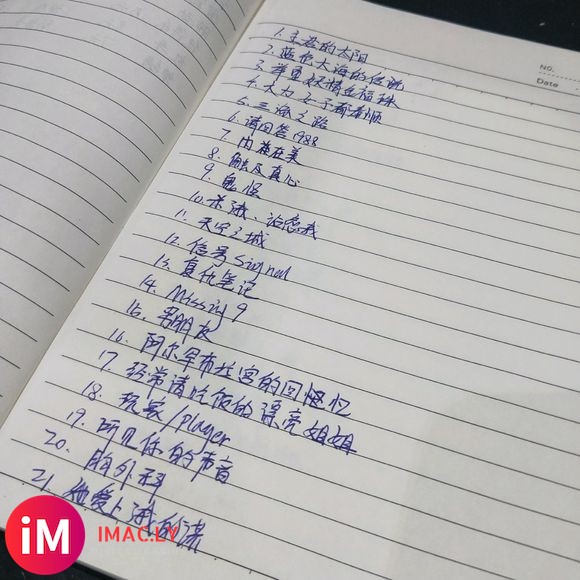 NO.
Date
1. 主君的太阳
2. 蓝色大海的传说
3. 举重妖精金福珠
4. 大力女子都奉顺
5. 三流之路
6. 请回答1988
7. 内在美
8. 触及真心
9. 鬼怪
10. 杀我、治愈我
11. 天空之城
12. 信号 Signal
13. 复仇笔记
14. Missing 9
15. 男朋友
16. 阿尔罕布拉宫的回忆
17. 经常请吃饭的漂亮姐姐
18. 玩家/player
19. 听见你的声音
20. 胸外科
21. 她爱上我的谎
iM IMAC.LY